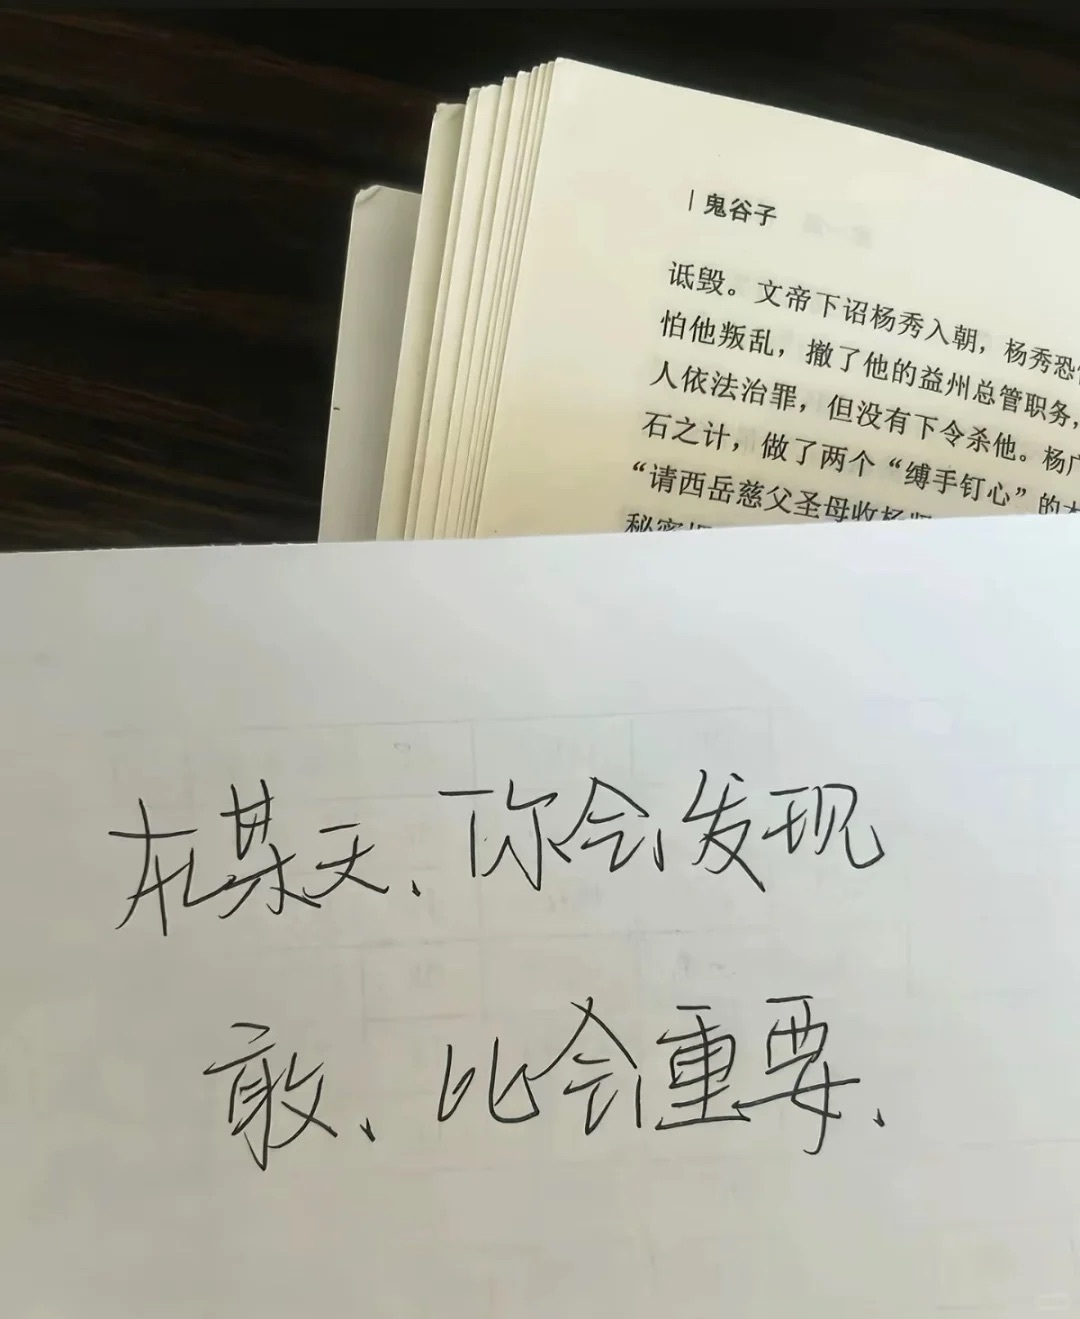 鬼谷子
诋毁。文帝下诏杨秀入朝，杨秀恐
怕他叛乱，撤了他的益州总管职务，
人依法治罪，但没有下令杀他。杨广
石之计，做了两个“缚手钉心”的
“请西岳慈父圣母收杨
秘密
在某天、你会发现
敢、比会重要、